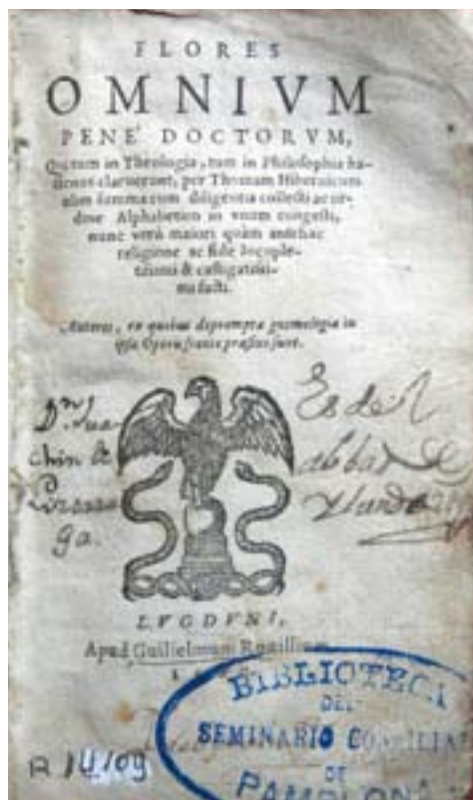 FLORES
OMNIVM
PENE' DOCTORVM,
Qui tum in Theologia, tum in Philosophia ha-
ctenus claruerunt, per Thomam Hibernicum
olim summa cum diligentia collecti ac or-
dine Alphabetico in unum congesti,
nunc verò maiori quàm antehac
religione ac fide locuple-
tiores & castigatissi-
mi facti.
ex quibus deprompta gnomologia in
ipso Operis
Dn
chin de
ga.
Es de
LVGDVNI,
Apud Guilielmum
BIBLIOTECA
DEL
SEMINARIO CONCILIAR
DE
PAMPLONA